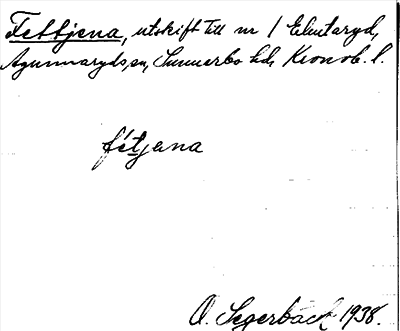 Fetbjena, utskift till nr 1 Elmtaryd,
Agunnaryds sn, Sunnerbo hd, Kronob. l.
fétjana
O. Segerbäck 1938.